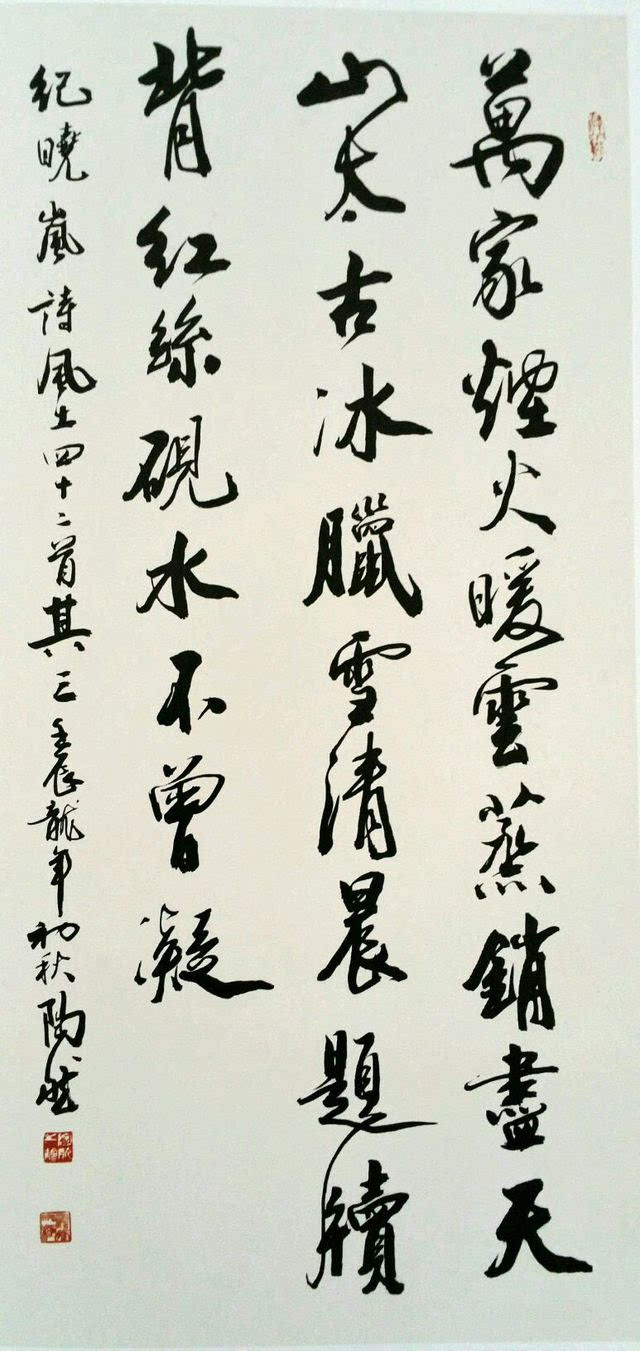 萬家煙火暖雲蒸銷盡天
山太古冰臘雪清晨題牘
背紅絲硯水不曾凝
紀曉嵐詩風土四十二首其三壬辰龍年初秋陽然